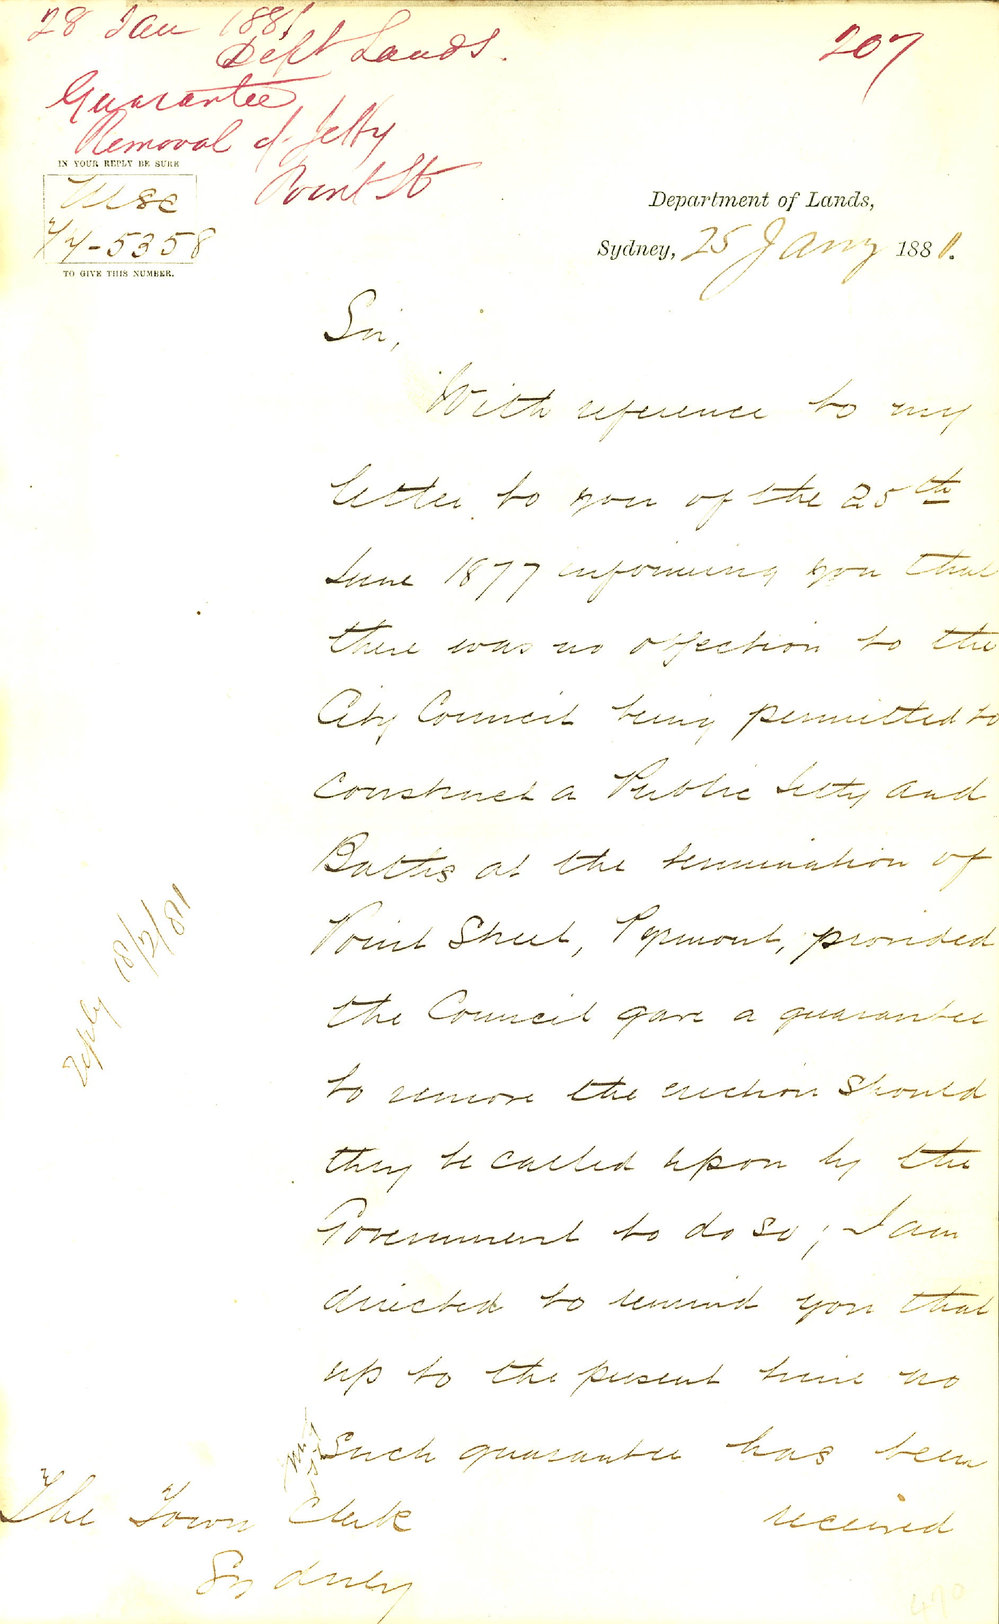 28 Jan 1881
Dept Lands.
207
Guarantee
Removal of Jetty
Point St
IN YOUR REPLY BE SURE
Misc
77-5358
TO GIVE THIS NUMBER.
Department of Lands,
Sydney, 25 Jany 1881.
Sir,
With reference to my
letter to you of the 25th
June 1877 informing you that
there was no objection to the
City Council being permitted to
construct a Public Jetty and
Baths at the termination of
Point Street, Pyrmont, provided
the Council gave a guarantee
to remove the erection should
they be called upon by the
Government to do so; I am
directed to remind you that
up to the present time no
such guarantee has been
received
The Town Clerk
Sydney
reply 18/2/81
470